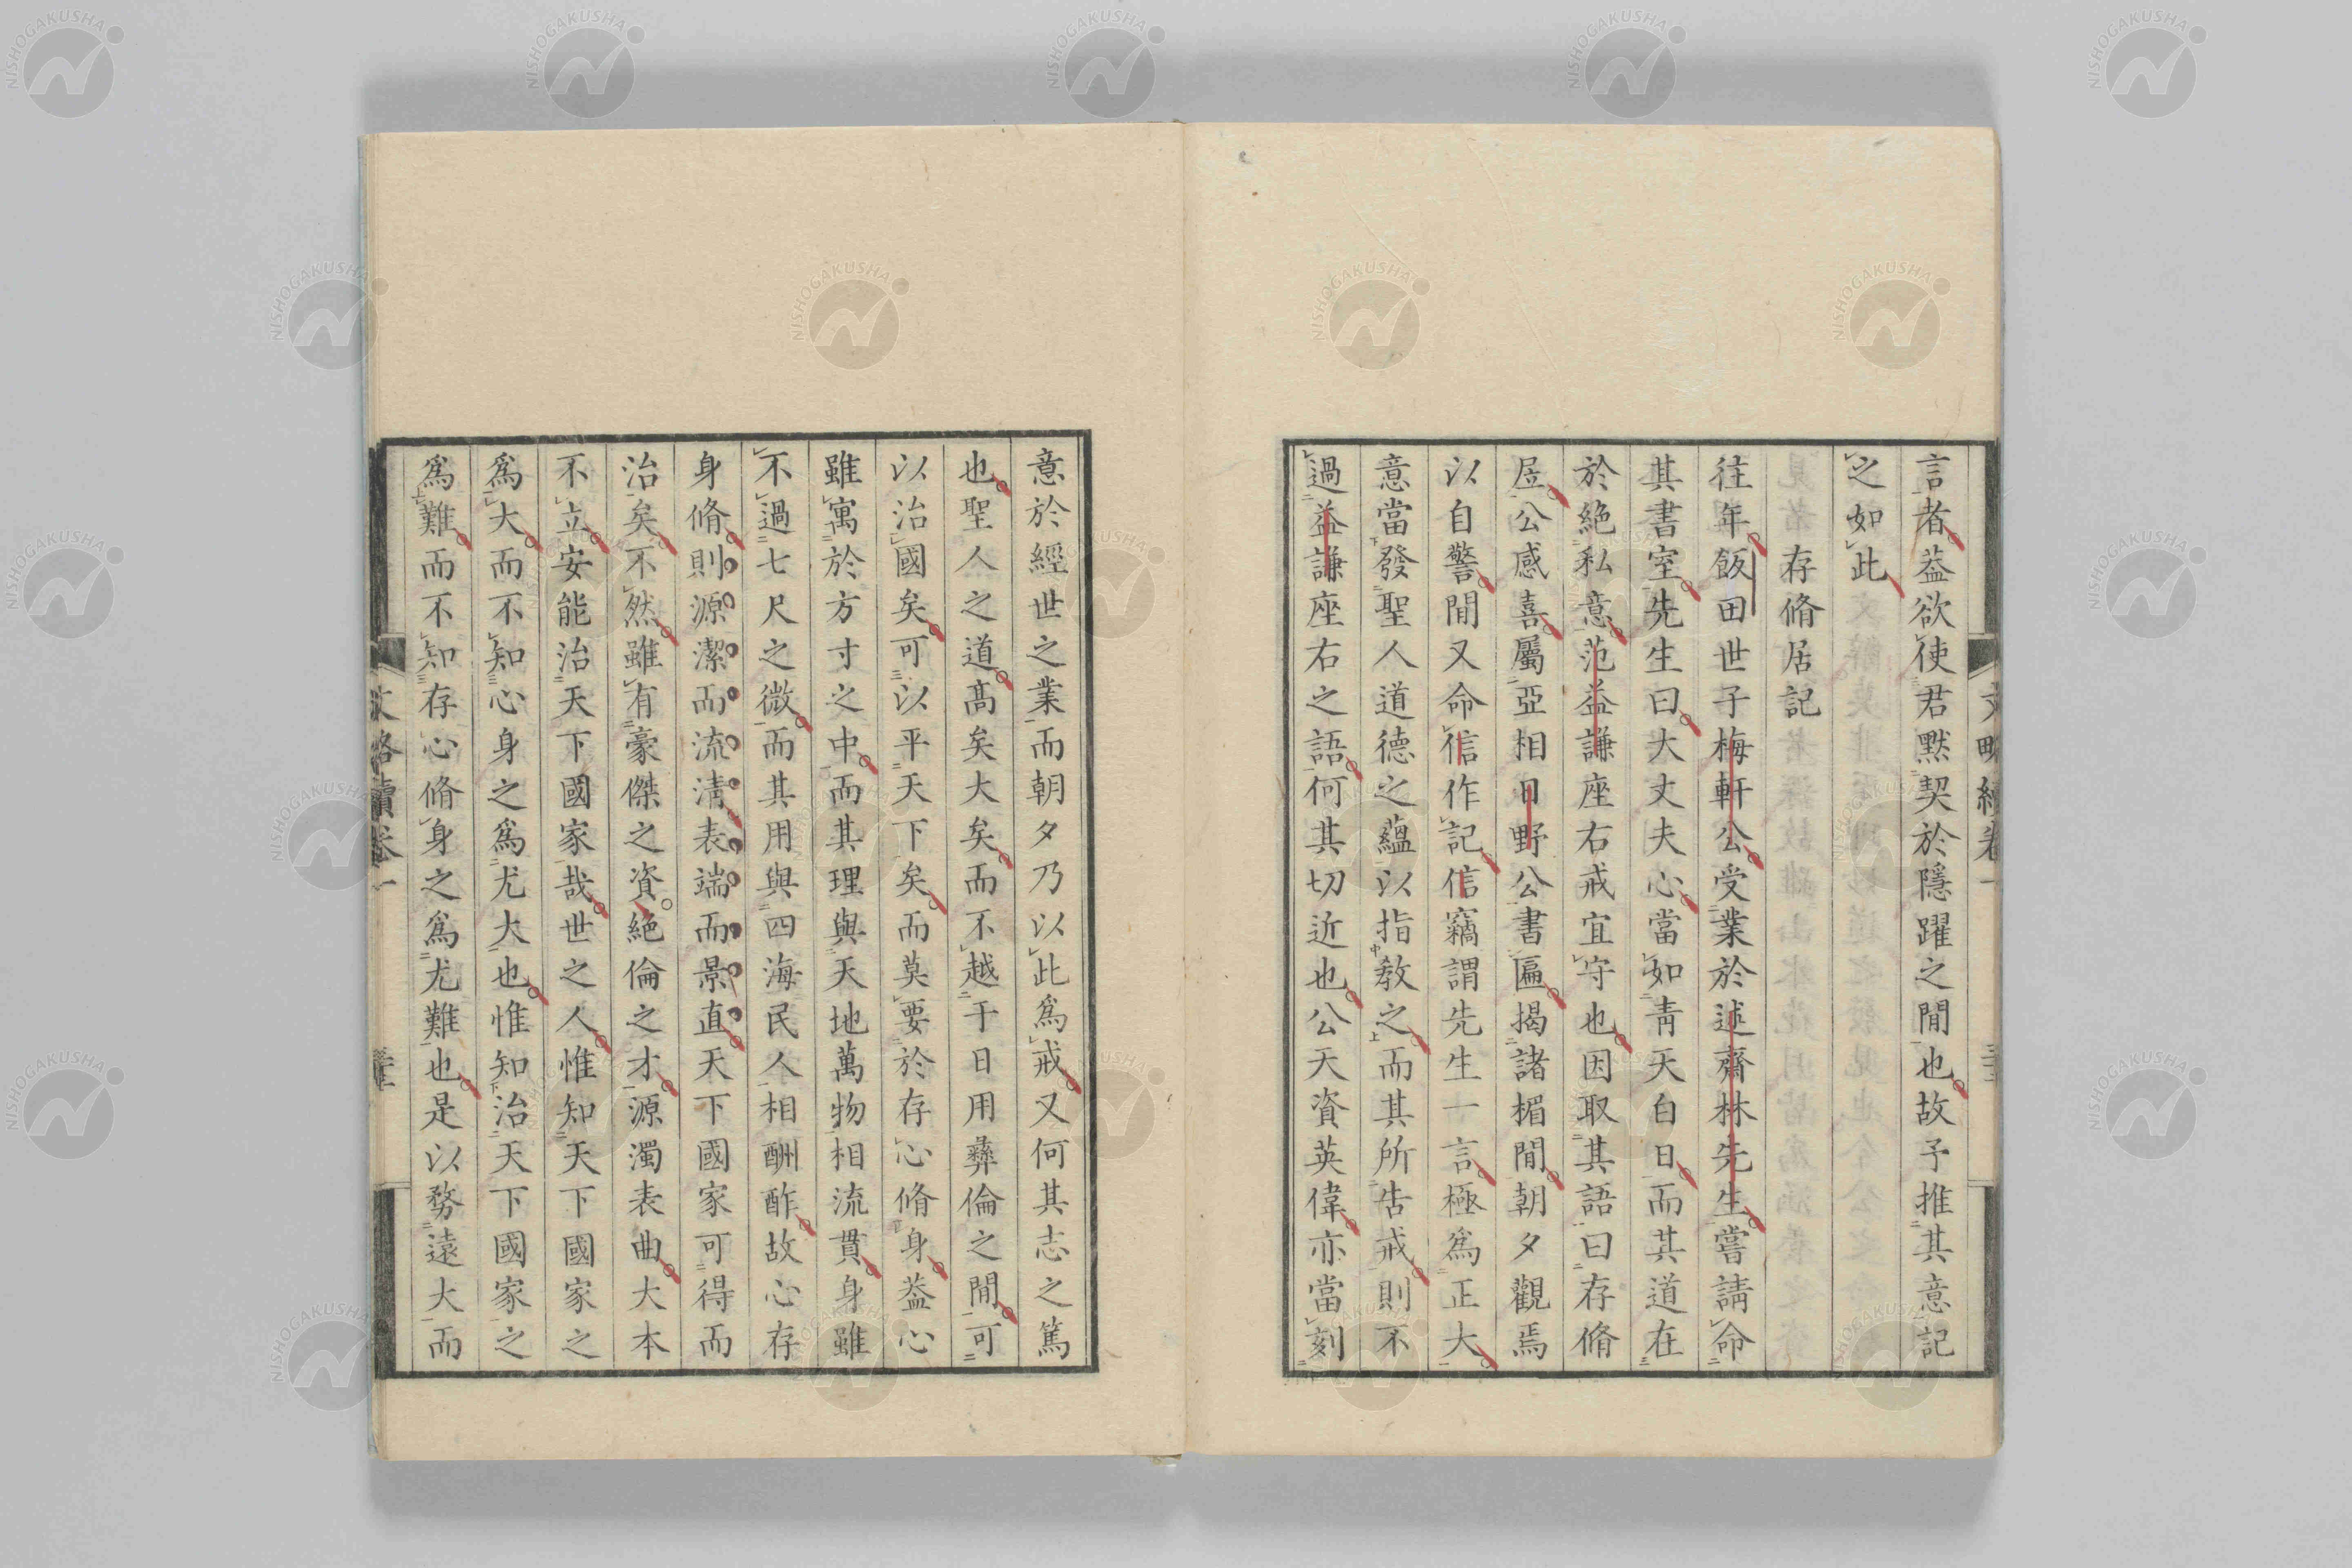 言者葢欲使君默契於隱躍之間也故予推其意記
之如此
存脩居記
往年飯田世子梅軒公受業於述齋林先生嘗請命
其書室先生曰大丈夫心當如靑天白日而其道在
於絕私意范益謙座右戒宜守也因取其語曰存脩
居公感喜屬亞相日野公書匾揭諸楣間朝夕觀焉
以自警間又命信作記信竊謂先生一言極爲正大
意當發聖人道德之蘊以指敎之而其所告戒則不
過益謙座右之語何其切近也公天資英偉亦當刻
意於經世之業而朝夕乃以此爲戒又何其志之篤
也聖人之道高矣大矣而不越于日用彝倫之間可
以治國矣可以平天下矣而莫要於存心脩身葢心
雖寓於方寸之中而其理與天地萬物相流貫身雖
不過七尺之微而其用與四海民人相酬酢故心存
身脩則源潔而流淸表端而景直天下國家可得而
治矣不然雖有豪傑之資絕倫之才源濁表曲大本
不立安能治天下國家哉世之人惟知天下國家之
爲大而不知心身之爲尤大也惟知治天下國家之
爲難而不知存心脩身之爲尤難也是以務遠大而
NISHOGAKUSHA